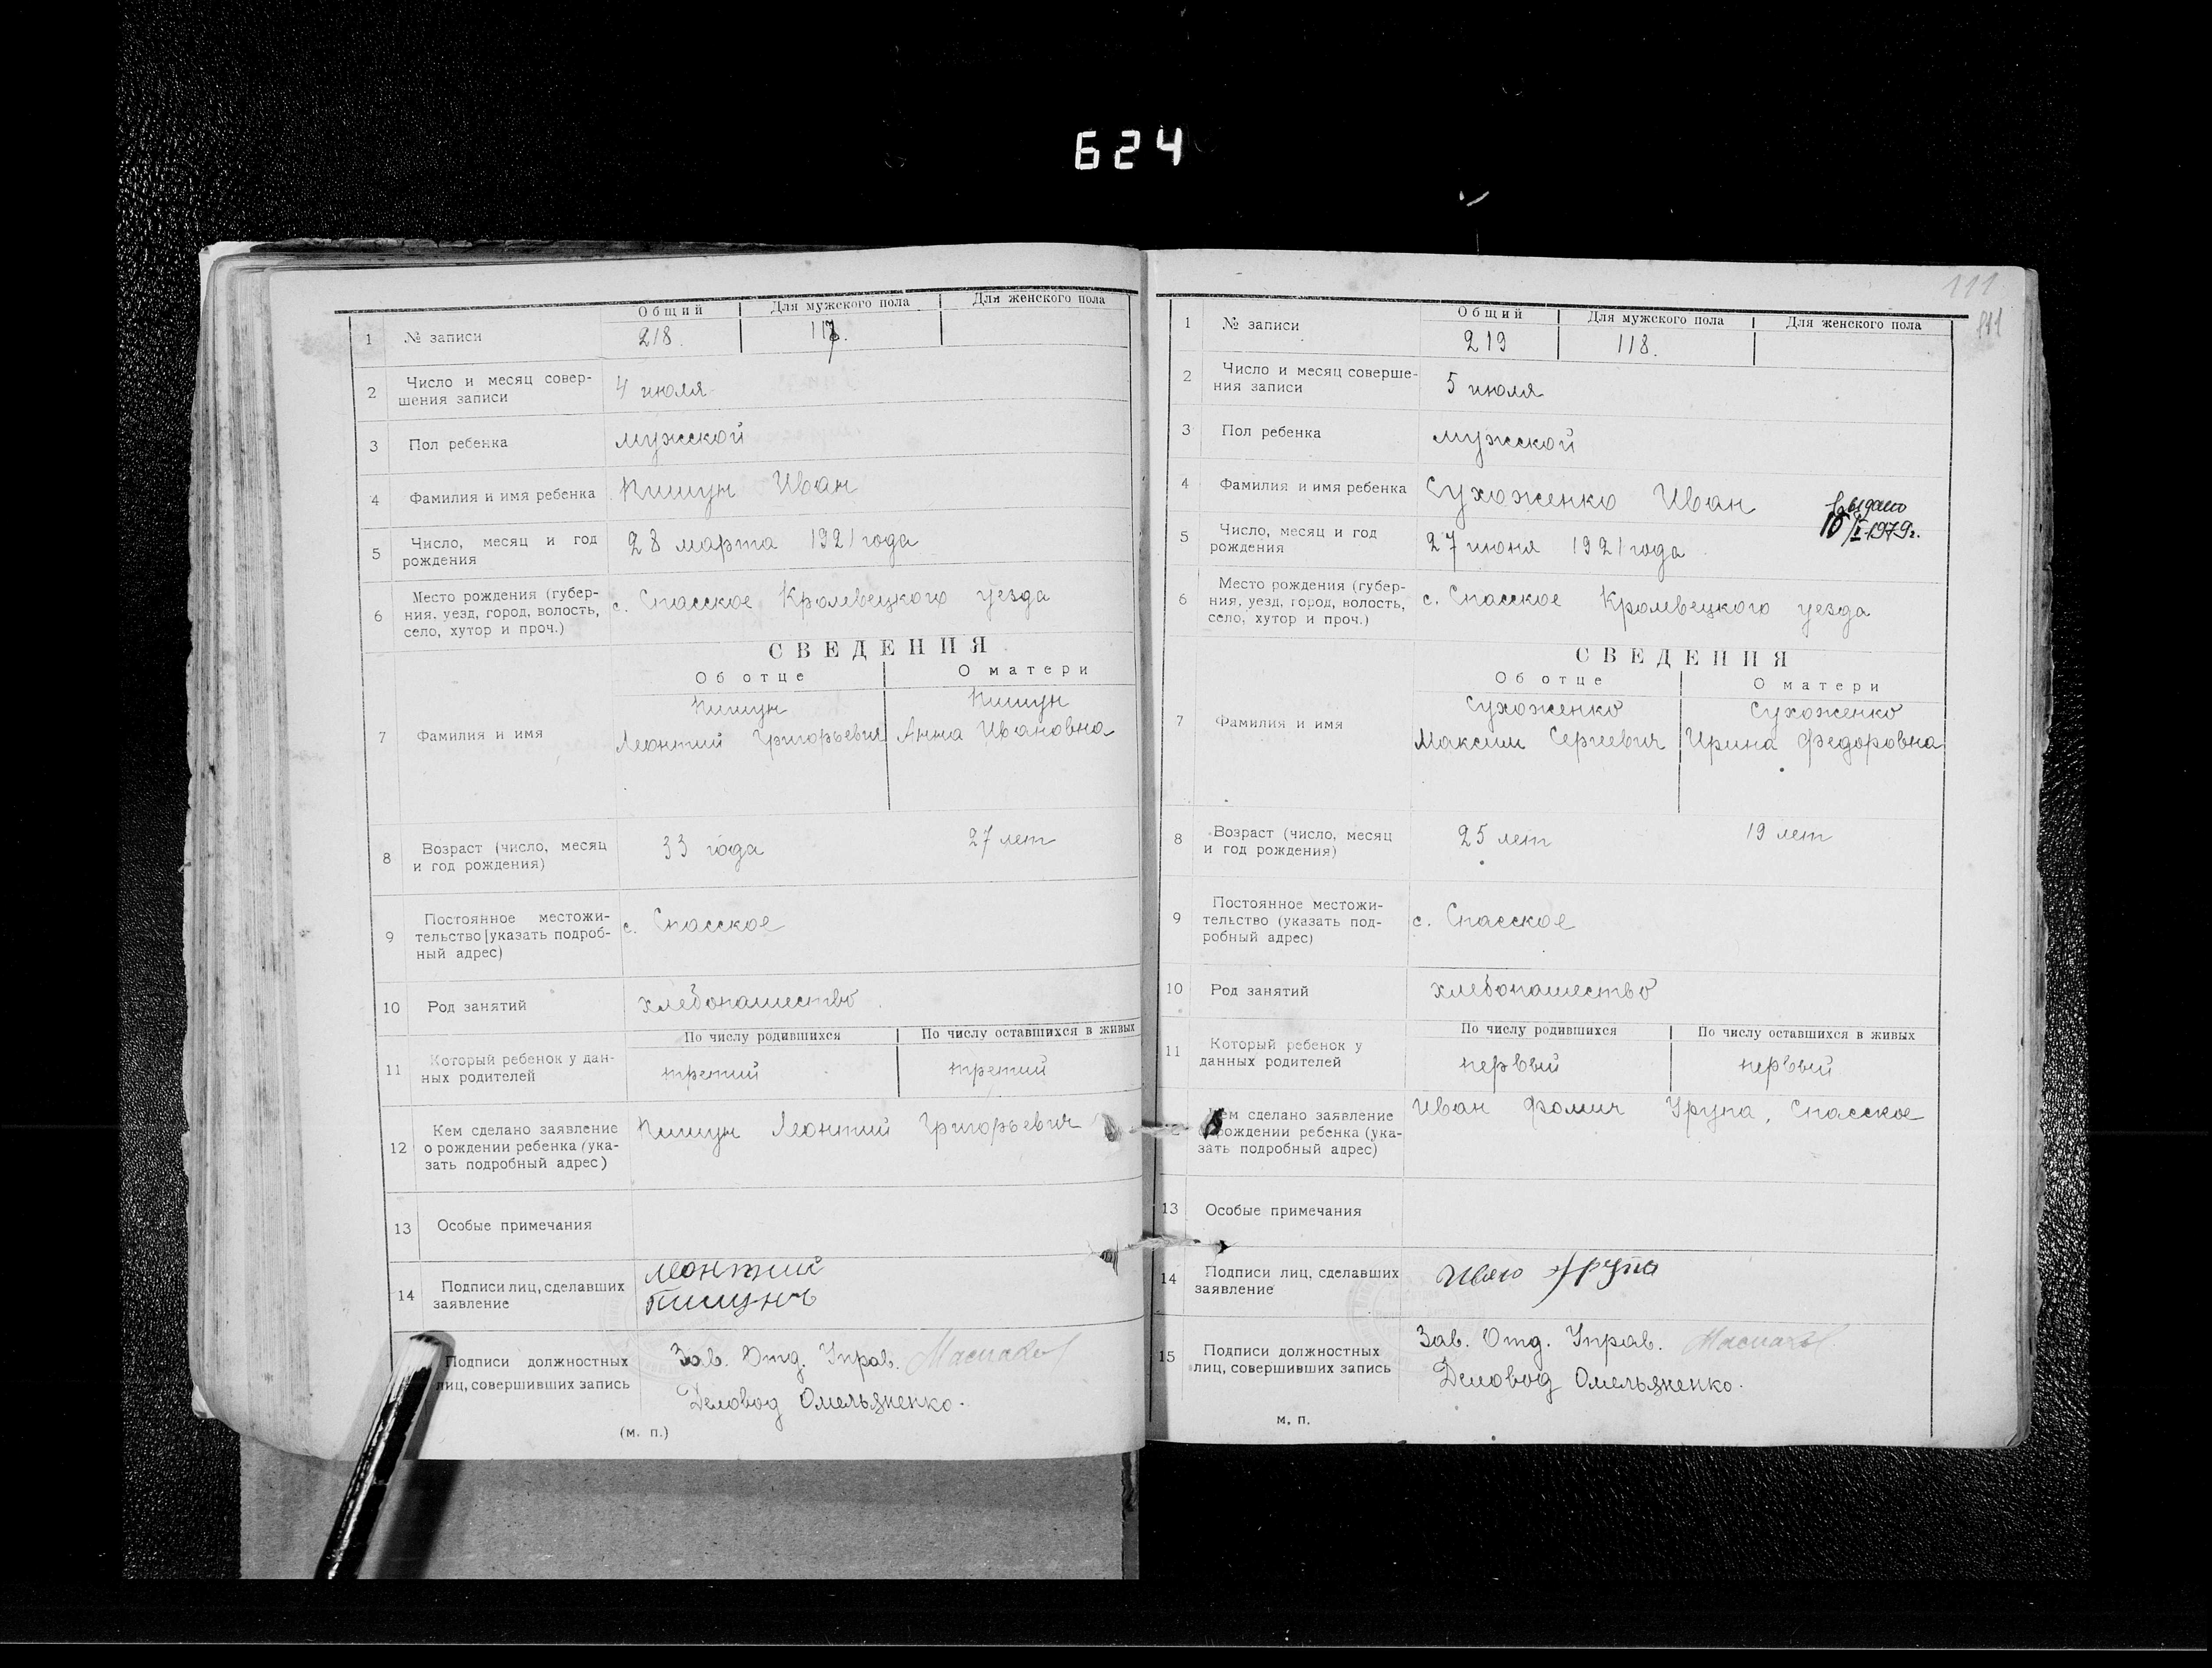 624
Общий Для мужского пола Для женского пола
1 № записи 218. 117.
2 Число и месяц совер-
шения записи 4 июля
3 Пол ребенка мужской
4 Фамилия и имя ребенка Кишун Иван
5 Число, месяц и год
рождения 28 марта 1921 года
6 Место рождения (губер-
ния, уезд, город, волость,
село, хутор и проч.) с. Спасское Кролевецкого уезда
СВЕДЕНИЯ
Об отце О матери
7 Фамилия и имя
Кишун Кишун
Леонтий Григорьевич Анна Ивановна
8 Возраст (число, месяц
и год рождения) 33 года 27 лет
9 Постоянное местожи-
тельство (указать подроб-
ный адрес) с. Спасское
10 Род занятий хлебопашество
По числу родившихся По числу оставшихся в живых
11 Который ребенок у дан-
ных родителей третий третий
12 Кем сделано заявление
о рождении ребенка (ука-
зать подробный адрес) Кишун Леонтий Григорьевич
13 Особые примечания
14 Подписи лиц, сделавших
заявление Леонтий
Кишунъ
Подписи должностных
лиц, совершивших запись Зав. Отд. Управ.
Деловод Омельяненко.
(м. п.)
111
111
Общий Для мужского пола Для женского пола
1 № записи 219 118.
2 Число и месяц соверше-
ния записи 5 июля
3 Пол ребенка мужской
4 Фамилия и имя ребенка Сухоженко Иван
выдано
1979г.
5 Число, месяц и год
рождения 27 июня 1921 года
6 Место рождения (губер-
ния, уезд, город, волость,
село, хутор и проч.) с. Спасское Кролвецкого уезда
СВЕДЕНИЯ
Об отце О матери
7 Фамилия и имя
Сухоженко Сухоженко
Максим Сергиевич Ирина Федоровна
8 Возраст (число, месяц
и год рождения) 25 лет 19 лет
9 Постоянное местожи-
тельство (указать под-
робный адрес) с. Спасское
10 Род занятий хлебопашество
По числу родившихся По числу оставшихся в живых
11 Который ребенок у
данных родителей первый первый
Кем сделано заявление
о рождении ребенка (ука-
зать подробный адрес) Иван Фомич Крупа, Спасское
13 Особые примечания
14 Подписи лиц, сделавших
заявление
15 Подписи должностных
лиц, совершивших запись Зав. Отд. Управ.
Деловод Омельяненко.
м. п.